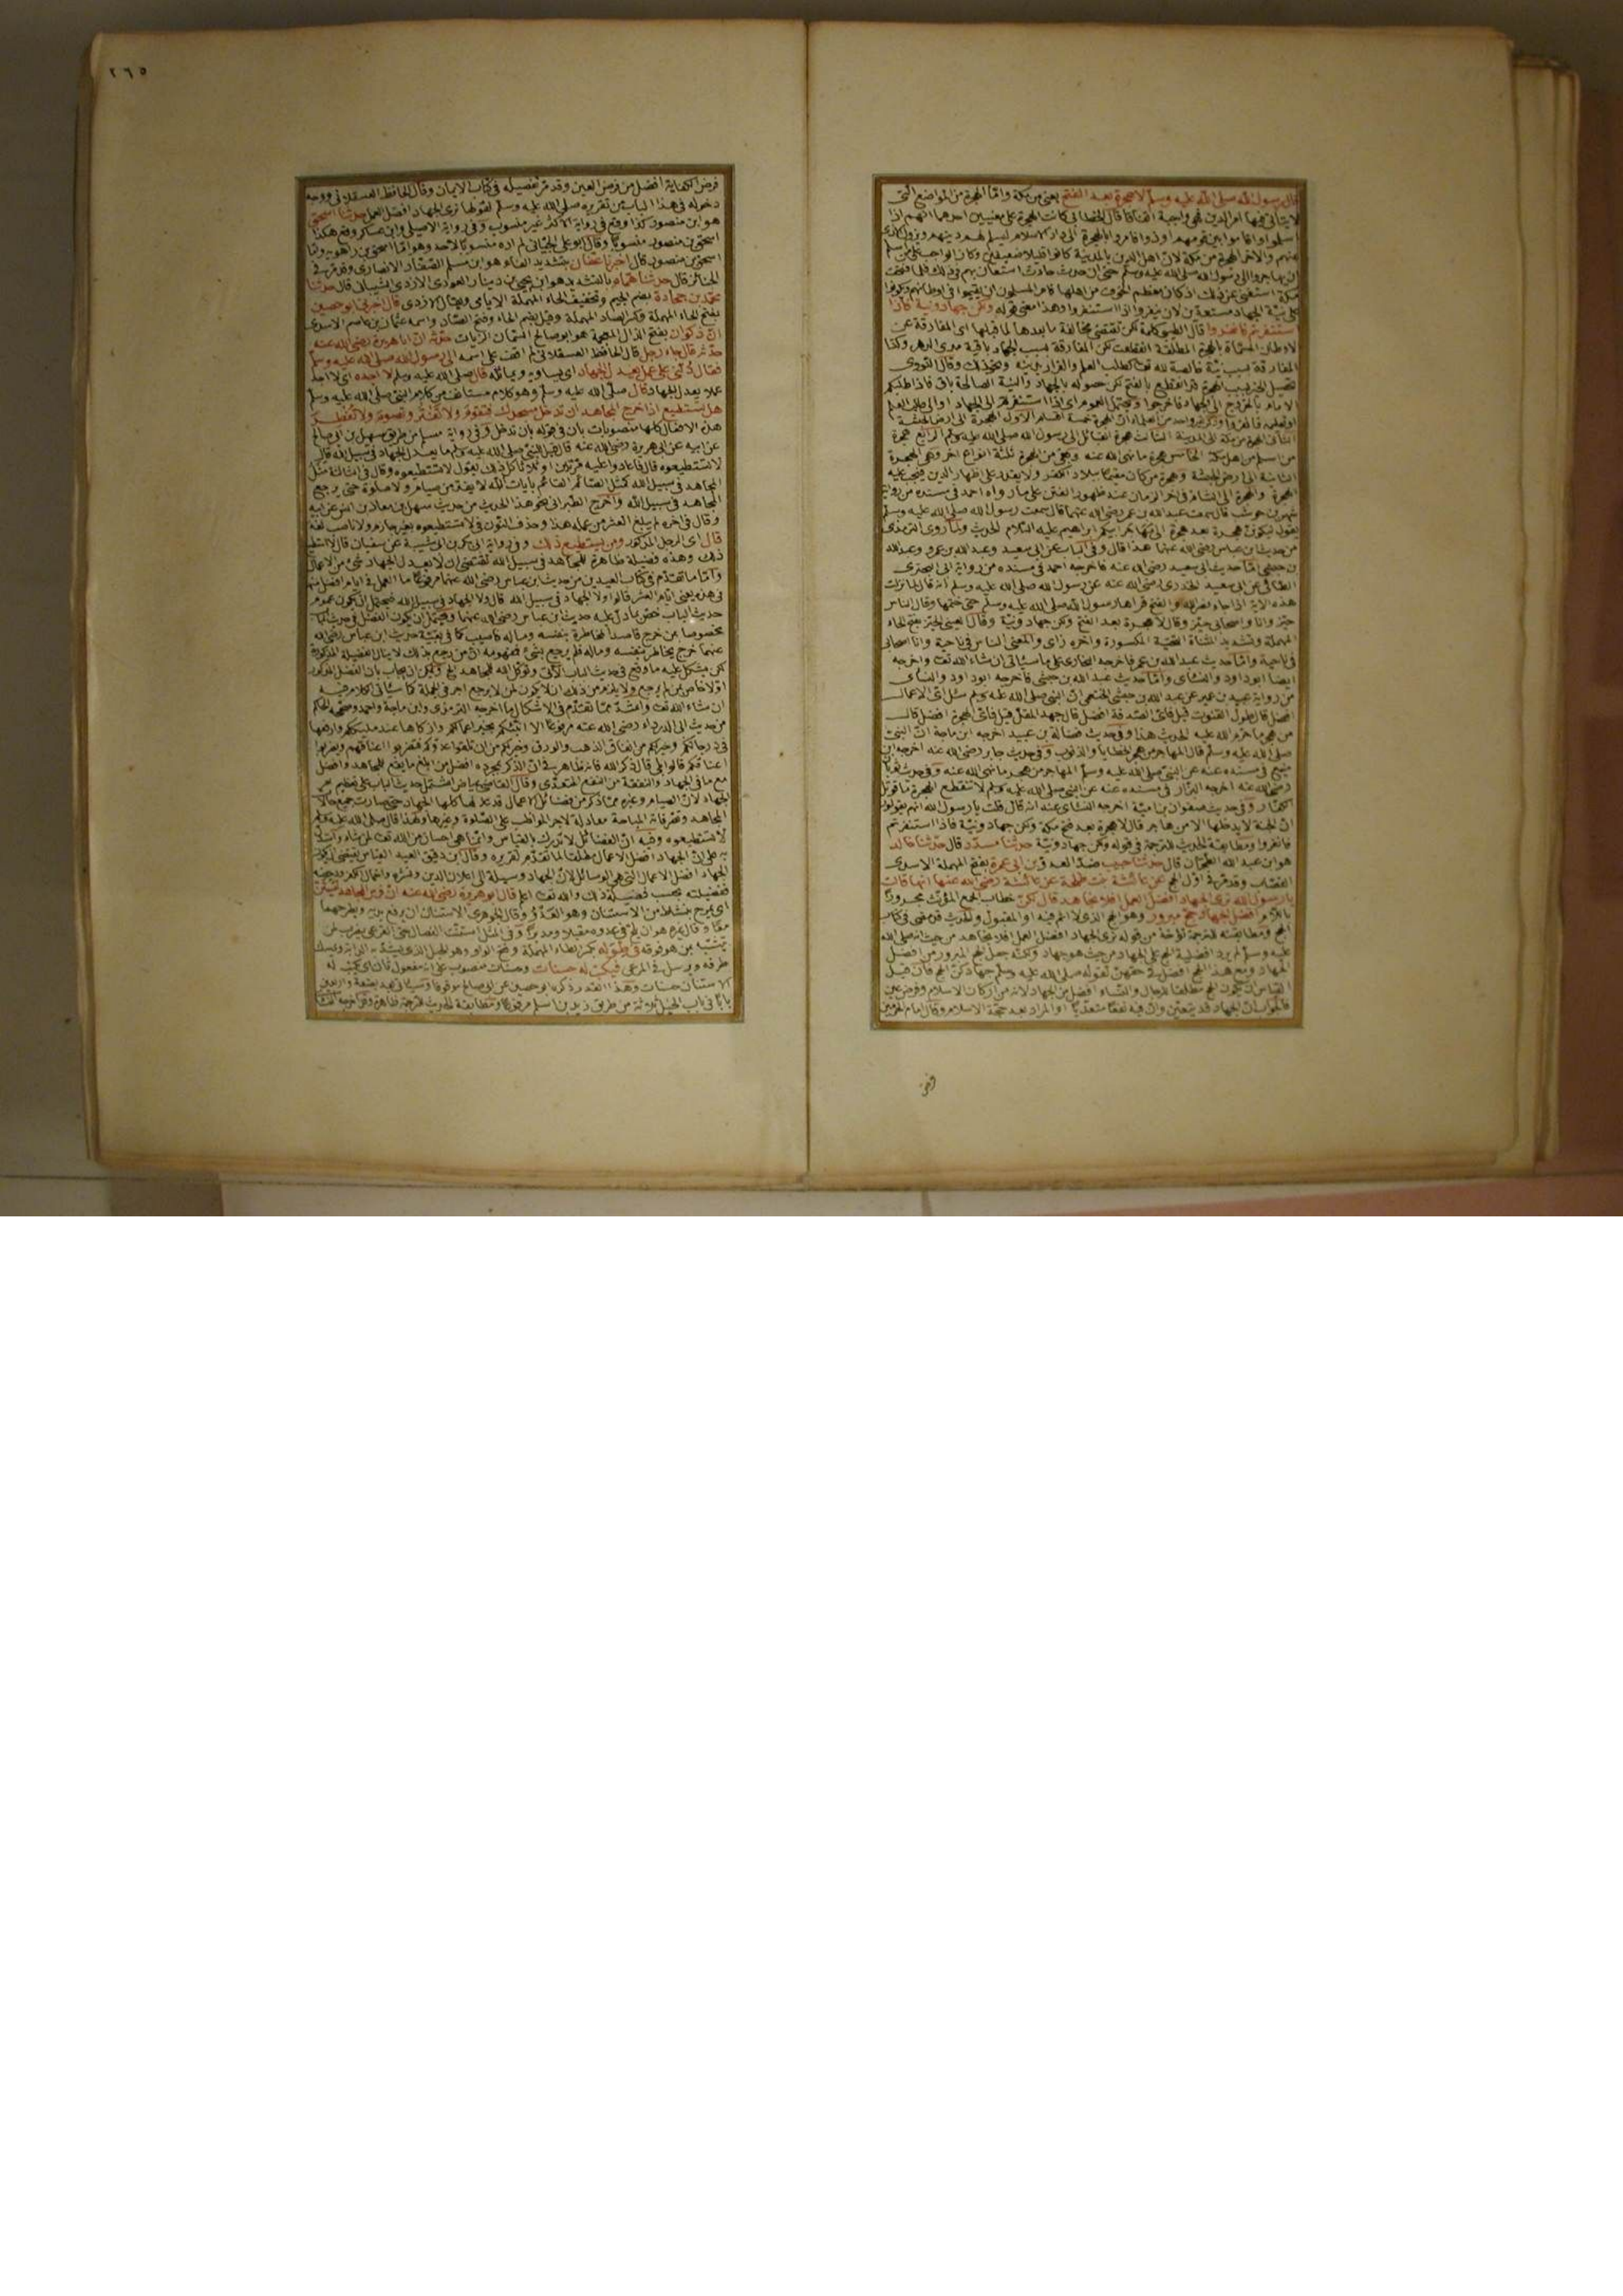 قال رسول الله صلى الله عليه وسلم لا هجرة بعد الفتح يعني من مكة واما الهجرة من المواضع التي
لا يتأتى فيها امر الدين فهي واجبة اتفاقا قال الخطابي كانت الهجرة على معنيين احدهما انهم اذا
اسلموا واقاموا بين قومهم اوذوا فامروا بالهجرة الى دار الاسلام ليسلم لهم دينهم ويزول الاذى
عنهم والاخر الهجرة من مكة لان اهل الدين بالمدينة كانوا قليلا ضعيفين وكان الواجب على من اسلم
ان يهاجروا الى رسول الله صلى الله عليه وسلم حتى ان حدث حادث استعان بهم في ذلك فلما فتحت
مكة استغنى عن ذلك اذ كان معظم الخوف من اهلها فامر المسلمون ان يقيموا في اوطانهم ويكونوا
على نية الجهاد مستعدين لان ينفروا اذا استنفروا وهذا معنى قوله ولكن جهاد ونية فاذا
استنفرتم فانفروا قال الطيبي كلمة لكن تقتضي مخالفة ما بعدها لما قبلها اى المفارقة عن
الاوطان المسماة بالهجرة المطلقة انقطعت لكن المفارقة بسبب الجهاد باقية مدى الدهر وكذا
المفارقة بسبب نية خالصة لله تعالى كطلب العلم والفرار بدينه ونحو ذلك وقال النووى
تحصيل الخير بسبب الهجرة قد انقطع بالفتح لكن حصوله بالجهاد والنية الصالحة باق فاذا طلبكم
الامام بالخروج الى الجهاد فاخرجوا ويحتمل العموم اى اذا استنفرتم الى الجهاد او الى طلب العلم
الثاني الهجرة من مكة الى المدينة الثالث هجرة القبائل الى رسول الله صلى الله عليه وسلم الرابع هجرة
من اسلم من اهل مكة الخامس هجرة ما نهى الله عنه وبقي من الهجرة ثلثة انواع اخر وهي الهجرة
الثانية الى ارض الحبشة وهجرة من كان مقيما ببلاد الكفر ولا يقدر على اظهار الدين فيجب عليه
الهجرة والهجرة الى الشام في اخر الزمان عند ظهور الفتن على ما رواه احمد في مسنده من رواية
شهر بن حوشب قال سمعت عبد الله بن عمر رضي الله عنهما قال سمعت رسول الله صلى الله عليه وسلم
يقول لتكونن هجرة بعد هجرة الى مهاجر ابيكم ابراهيم عليه السلام الحديث ولما روى الترمذى
من حديث ابن عباس رضي الله عنهما هذا قال وفي الباب عن ابي سعيد وعبد الله بن عمرو وعبد الله
بن حبشي اما حديث ابي سعيد رضي الله عنه فاخرجه احمد في مسنده من رواية ابي البخترى
الطائي عن ابي سعيد الخدرى رضي الله عنه عن رسول الله صلى الله عليه وسلم انه قال لما نزلت
هذه الاية اذا جاء نصر الله والفتح قرأها رسول الله صلى الله عليه وسلم حتى ختمها وقال الناس
حيز وانا واصحابي حيز وقال لا هجرة بعد الفتح ولكن جهاد ونية وقال يعني الحيز بفتح الحاء
المهملة وتشديد المثناة التحتية المكسورة واخره زاى والمعنى الناس في ناحية وانا اصحابي
في ناحية واما حديث عبد الله بن عمر فاخرجه البخارى على ما سيأتي ان شاء الله تعالى واخرجه
ايضا ابو داود والنسائي واما حديث عبد الله بن حبشي فاخرجه ابو داود والنسائي
من رواية عبيد بن عمير عن عبد الله بن حبشي الخثعمي ان النبي صلى الله عليه وسلم سئل اى الاعمال
افضل قال طول القنوت قيل فاى الصدقة افضل قال جهد المقل قيل فاى الهجرة افضل قال
من هجر ما حرم الله عليه الحديث هذا وفي حديث فضالة بن عبيد اخرجه ابن ماجة ان النبي
صلى الله عليه وسلم قال المهاجر من هجر الخطايا والذنوب وفي حديث جابر رضي الله عنه اخرجه ابن
منيع في مسنده عنه عن النبي صلى الله عليه وسلم المهاجر من هجر ما نهى الله عنه وفي حديث ثوبان
رضي الله عنه اخرجه البزار في مسنده عنه عن النبي صلى الله عليه وسلم لا تنقطع الهجرة ما قوتل
الكفار وفي حديث صفوان بن امية اخرجه النسائي عنه انه قال قلت يا رسول الله انهم يقولون
ان الجنة لا يدخلها الا من هاجر قال لا هجرة بعد فتح مكة ولكن جهاد ونية فاذا استنفرتم
فانفروا ومطابقة الحديث للترجمة في قوله ولكن جهاد ونية حدثنا مسدد قال حدثنا خالد
هو ابن عبد الله الطحان قال حدثنا حبيب ضد العدو بن ابي عمرة بفتح المهملة الاسدى
القصاب وقد مر في اول الحج عن عائشة بنت طلحة عن عائشة رضي الله عنها انها قالت
يا رسول الله نرى الجهاد افضل العمل افلا نجاهد قال لكن خطاب الجمع المؤنث مجرورا
باللام افضل الجهاد حج مبرور وهو الحج الذى لا اثم فيه او المقبول والحديث قد مضى في كتاب
الحج ومطابقته للترجمة تؤخذ من قوله نرى الجهاد افضل العمل افلا نجاهد من حيث انه صلى الله
عليه وسلم لم يرد افضلية الحج على الجهاد من حيث هو جهاد ولكنه جعل الحج المبرور من افضل
الجهاد ومع هذا الحج افضل في حقهن لقوله صلى الله عليه وسلم جهادكن الحج فان قيل
القياس ان يكون الحج مطلقا للرجال والنساء افضل من الجهاد لانه من اركان الاسلام وفرض عين
فالجواب ان الجهاد قد يتعين وان فيه نفعا متعديا او المراد بعد حجة الاسلام وقال امام الحرمين
فرض
٢٦٥
فرض الكفاية افضل من فرض العين وقد مر تفصيله في كتاب الايمان وقال الحافظ العسقلاني ووجه
دخوله في هذا الباب من تقريره صلى الله عليه وسلم لقولها نرى الجهاد افضل العمل حدثنا اسحق
هو ابن منصور كذا وقع في رواية الاكثر غير منسوب وفي رواية الاصيلي وابن عساكر وقع هكذا
اسحق بن منصور منسوبا وقال ابو علي الجياني لم اره منسوبا لاحد وهو اما اسحق بن راهويه واما
اسحق بن منصور قال اخبرنا عفان بتشديد الفاء هو ابن مسلم الصفار الانصارى وقد مر في
الجنائز قال حدثنا همام بالتشديد هو ابن يحيى بن دينار العوذى الازدى الشيباني قال حدثنا
محمد بن جحادة بضم الجيم وتخفيف الحاء المهملة الايامي ويقال الازدى قال اخبرني ابو حصين
بفتح الحاء المهملة وكسر الصاد المهملة وقيل بضم الحاء وفتح الصاد واسمه عثمان بن عاصم الاسدى
ان ذكوان بفتح الذال المعجمة هو ابو صالح السمان الزيات حدثه ان ابا هريرة رضي الله عنه
حدثه قال جاء رجل قال الحافظ العسقلاني لم اقف على اسمه الى رسول الله صلى الله عليه وسلم
فقال دلني على عمل يعدل الجهاد اى يساويه ويماثله قال صلى الله عليه وسلم لا اجده اى لا اجد
عملا يعدل الجهاد قال صلى الله عليه وسلم وهو كلام مستأنف من كلام النبي صلى الله عليه وسلم
هل تستطيع اذا خرج المجاهد ان تدخل مسجدك فتقوم ولا تفتر وتصوم ولا تفطر
هذه الافعال كلها منصوبات بان في قوله بان تدخل وفي رواية مسلم من طريق سهيل بن ابي صالح
عن ابيه عن ابي هريرة رضي الله عنه قال قيل للنبي صلى الله عليه وسلم ما يعدل الجهاد في سبيل الله قال
لا تستطيعوه قال فاعادوا عليه مرتين او ثلاثا كل ذلك يقول لا تستطيعوه وقال في الثالثة مثل
المجاهد في سبيل الله كمثل الصائم القائم بآيات الله لا يفتر من صيام ولا صلوة حتى يرجع
المجاهد في سبيل الله واخرج الطبراني نحو هذا الحديث من حديث سهل بن معاذ بن انس عن ابيه
وقال في اخره لم يبلغ العشر من عمله هذا وحذف النون في لا تستطيعوه بغير جازم ولا ناصب لغة
قال اى الرجل المذكور ومن يستطيع ذلك وفي رواية ابي بكر بن ابي شيبة عن سفيان قال لا استطيع
ذلك وهذه فضيلة ظاهرة للمجاهد في سبيل الله تقتضي ان لا يعدل الجهاد شئ من الاعمال
واما ما تقدم في كتاب العيدين من حديث ابن عباس رضي الله عنهما مرفوعا ما العمل في ايام افضل منها
في هذه يعني ايام العشر قالوا ولا الجهاد في سبيل الله قال ولا الجهاد في سبيل الله فيحتمل ان يكون عموم
حديث الباب خص بما دل عليه حديث ابن عباس رضي الله عنهما ويحتمل ان يكون الفضل في حديث الباب
مخصوصا بمن خرج قاصدا المخاطرة بنفسه وماله فاصيب كما في بقية حديث ابن عباس رضي الله
عنهما خرج يخاطر بنفسه وماله فلم يرجع بشئ فمفهومه ان من رجع بذلك لا ينال الفضيلة المذكورة
لكن يشكل عليه ما وقع في حديث الباب الآتي وتوكل الله للمجاهد الخ ويمكن ان يجاب بان الفضل المذكور
اولا خاص بمن لم يرجع ولا يلزم من ذلك ان لا يكون لمن لا يرجع اجر في الجملة كما سيأتي الكلام فيه
ان شاء الله تعالى واشد مما تقدم في الاشكال ما اخرجه الترمذى وابن ماجة واحمد وصححه الحاكم
من حديث ابي الدرداء رضي الله عنه مرفوعا الا انبئكم بخير اعمالكم وازكاها عند مليككم وارفعها
في درجاتكم وخير لكم من انفاق الذهب والورق وخير لكم من ان تلقوا عدوكم فتضربوا اعناقهم ويضربوا
اعناقكم قالوا بلى قال ذكر الله فانه ظاهر في ان الذكر بمجرده افضل من ابلغ ما يقع للمجاهد وافضل
مع ما في الجهاد والنفقة من النفع المتعدى وقال القاضي عياض اشتمل حديث الباب على تعظيم امر
الجهاد لان الصيام وغيره مما ذكر من فضائل الاعمال قد عدلها كلها الجهاد حتى صارت جميع حالات
المجاهد وتصرفاته المباحة معادلة لاجر المواظب على الصلوة وغيرها ولهذا قال صلى الله عليه وسلم
لا تستطيعوه وفيه ان الفضائل لا تدرك بالقياس وانما هي احسان من الله تعالى لمن شاء واستدل
به على ان الجهاد افضل الاعمال مطلقا لما تقدم تقريره وقال ابن دقيق العيد القياس يقتضي ان يكون
الجهاد افضل الاعمال التي هي وسائل لان الجهاد وسيلة الى اعلان الدين ونشره واخمال الكفر ودحضه
ففضيلته بحسب فضيلة ذلك والله تعالى اعلم قال ابو هريرة رضي الله عنه ان فرس المجاهد ليستن
اى يمرح بنشاط من الاستنان وهو العدو وقال الجوهرى الاستنان ان يرفع يديه ويطرحهما
معا وقال غيره هو ان يلج في عدوه مقبلا ومدبرا وفي المثل استنت الفصال حتى القرعى يضرب لمن
يتشبه بمن هو فوقه في طوله بكسر الطاء المهملة وفتح الواو وهو الحبل الذى يشد به الدابة ويمسك
طرفه ويرسل في المرعى فيكتب له حسنات وحسنات منصوب على انه مفعول ثان اى يكتب له
الاستنان حسنات وهذا القدر ذكره ابو حصين عن ابي صالح موقوفا وسيأتي
باب الخيل ثلاثة من طريق زيد بن اسلم مرفوعا ومطابقة الحديث للترجمة ظاهرة